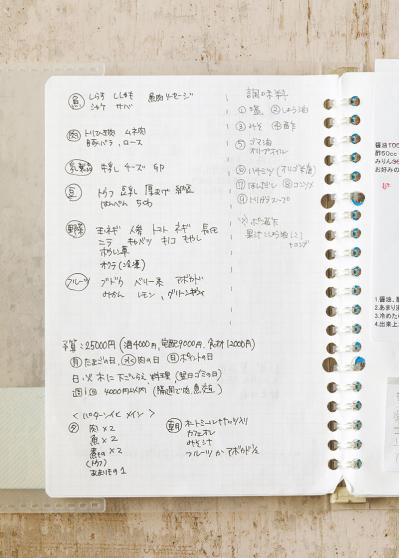 魚 しらす ししゃも 魚肉ソーセージ
シャケ サバ
肉 トリ ムネ肉
豚バラ、ロース
乳製品 牛乳 チーズ 卵
豆 トウフ 豆乳 厚あげ 納豆
はんぺん ちくわ
野菜 玉ネギ 人参 トマト ネギ 長芋
ニラ キャベツ キノコ もやし
オクラ(冷凍)
フルーツ ブドウ ベリー系 アボカド
みかん レモン、グリーンキウイ
調味料
① 塩、② しょう油
③ みそ ④ 酢
⑤ ゴマ油
オリーブオイル
⑥ ハチミツ (オリゴ糖)
⑦ はんだし ⑧ コンソメ
⑨ トリガラスープ
※ ポン酢
予算:25000円(酒4000円、宅配9000円、食材12000円)
月 たまごの日、水 肉の日
日・火・木に下ごしらえ、料理(翌日ゴミの日)
週1回 4000円
<パターン化 メイン>
夕 肉×2
魚×2
×2
(トウフ)
あまりもの1
朝 オートミール
カフェオレ
みそ汁
フルーツ か アボカド½
醤油
酢50cc
みりん
お好みの
1.醤油、
2.あまり
3.冷めた
4.出来上